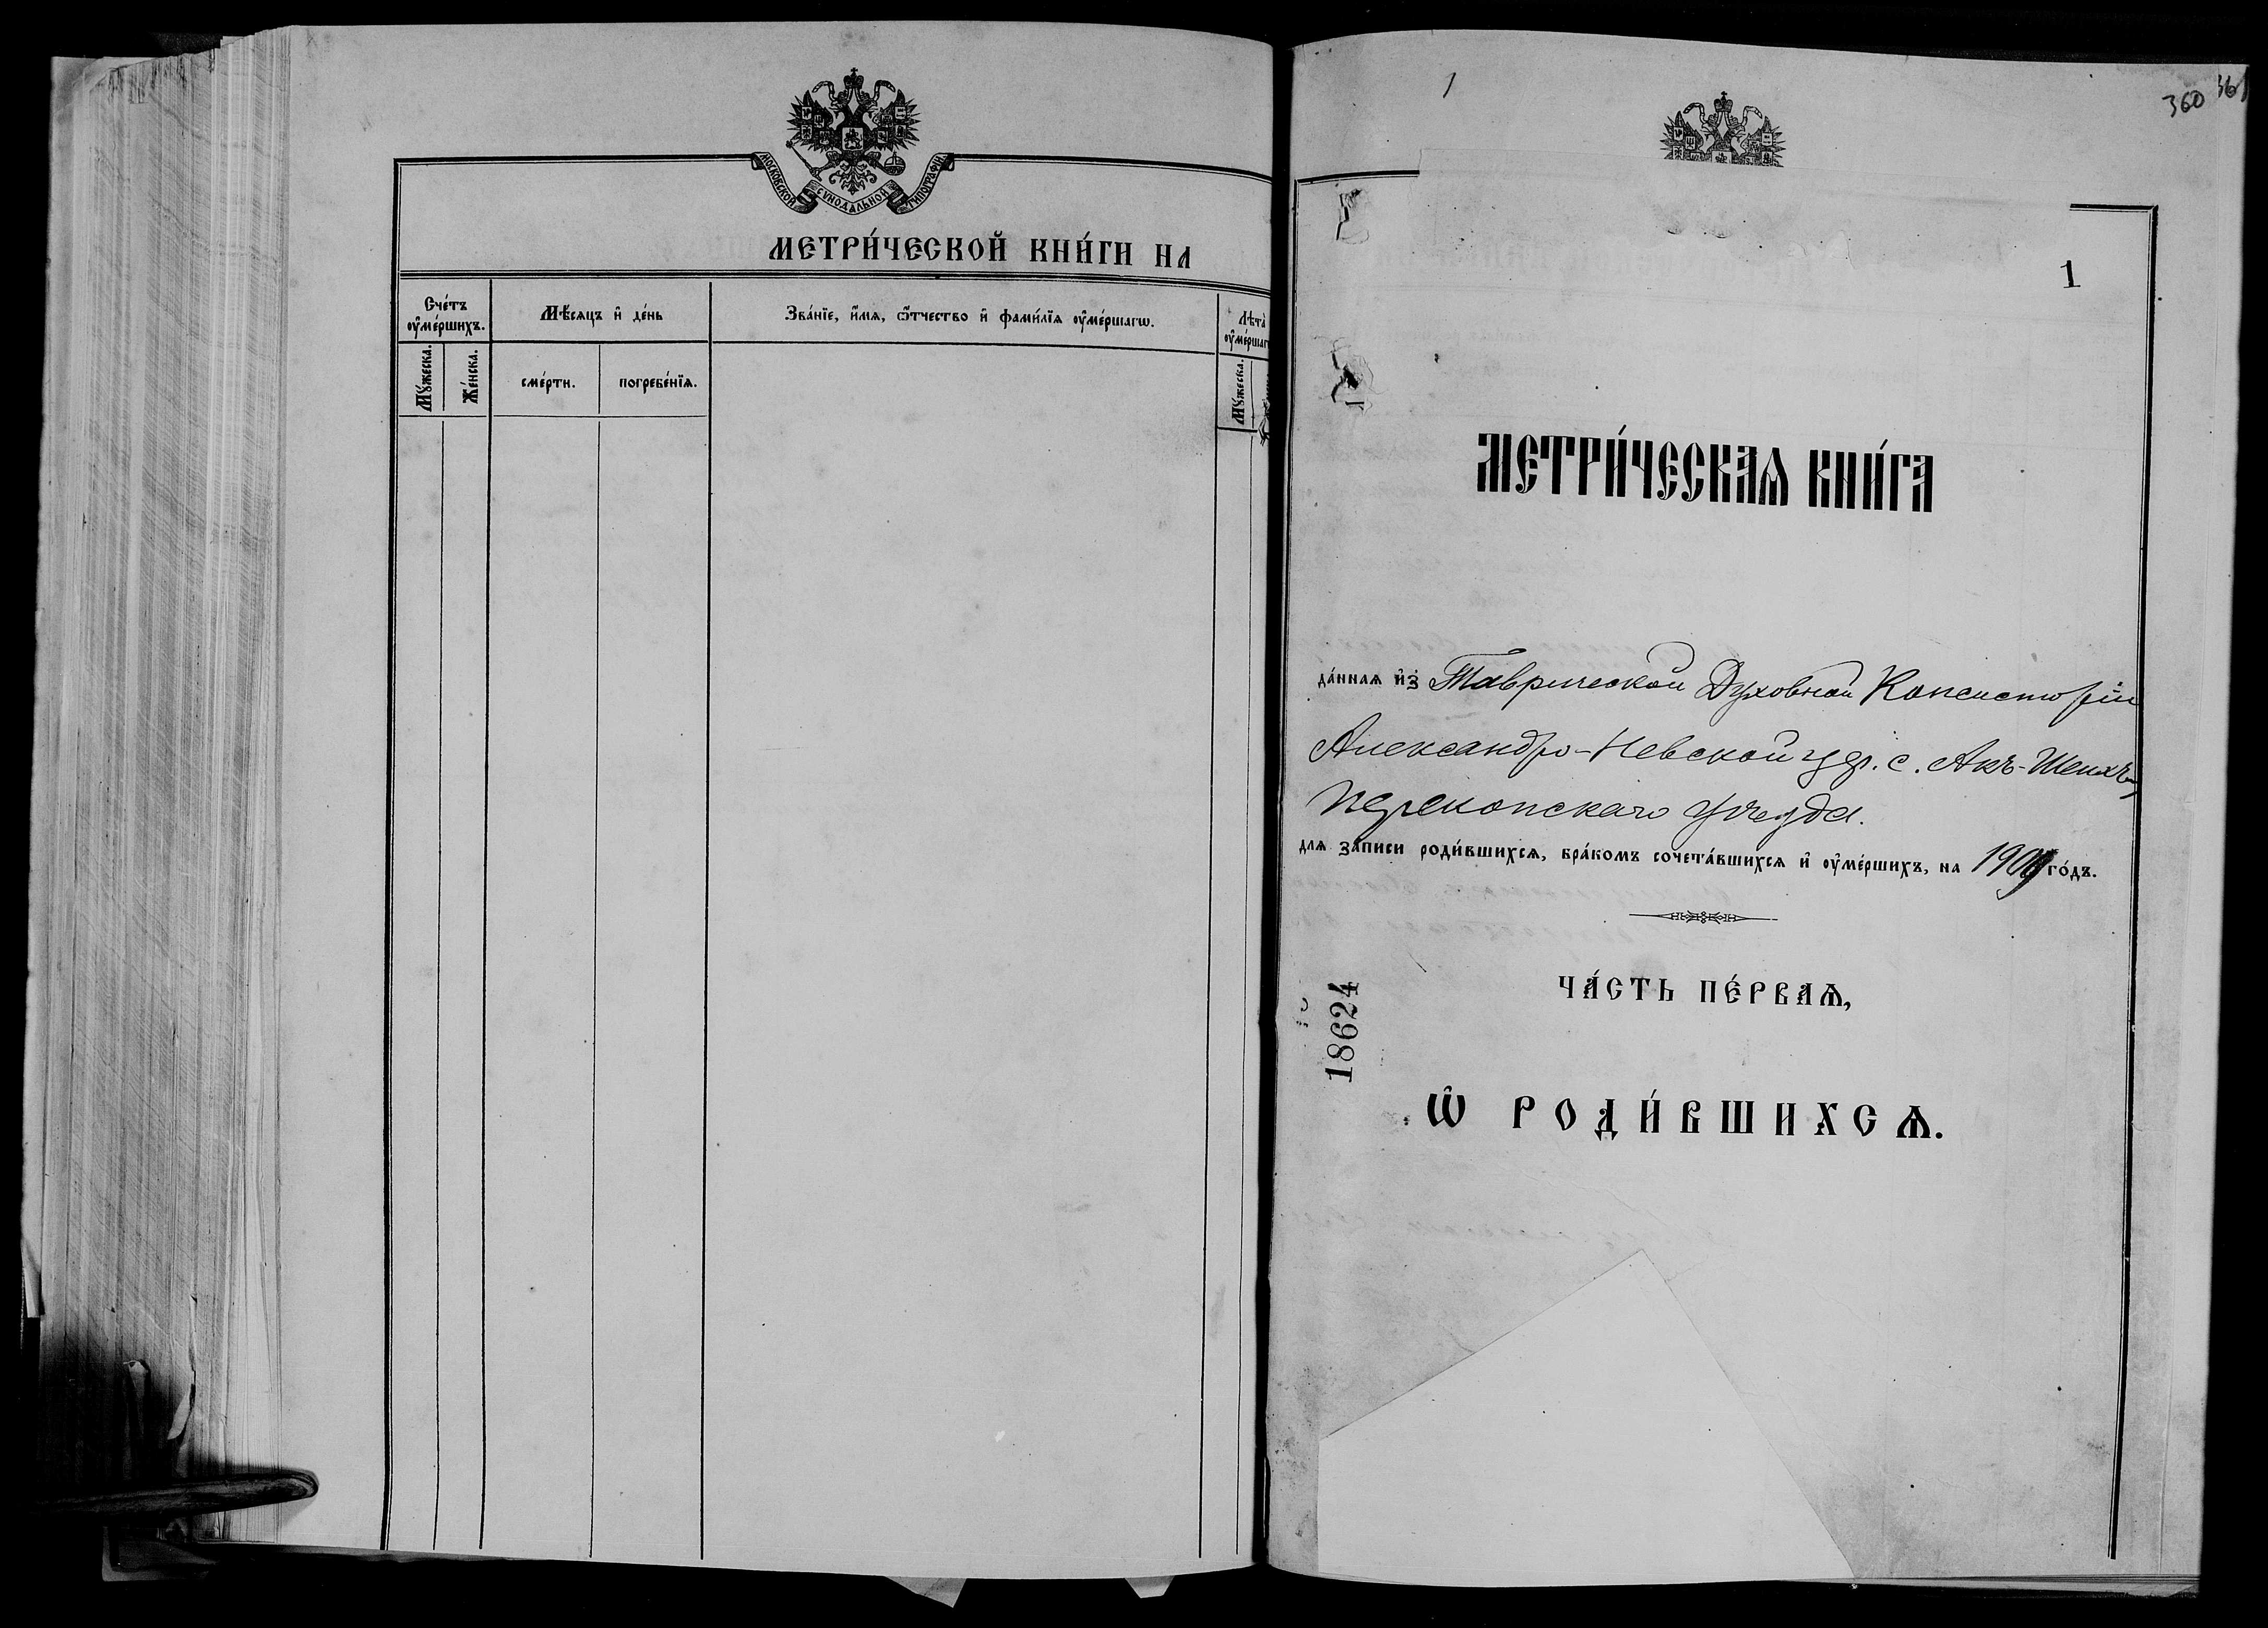 МОСКОВСКОЙ СУНОДАЛЬНОЙ ТИПОГРАФІИ
МЕТРИ́ЧЕСКОЙ КНИ́ГИ НА
Сче́тъ
оу҆ме́ршихъ.
Мѣ́сяцъ и҆ де́нь
Зва́нїе, и҆́мя, ѻ҆́тчество и҆ фами́лїя оу҆ме́ршагѡ.
Лѣта̀
оу҆ме́ршаг
Му́жеска.
Же́нска.
сме́рти.
погребе́нїя.
Му́жеска.
1
360
361
1
МЕТРИ́ЧЕСКАЯ КНИ́ГА
да́нная и҆з̾ Таврической Духовной Консисторіи
Александро-Невской цер. с. Акъ-Шеихъ,
Перекопскаго Уѣзда.
для за́писи роди́вшихся, бра́комъ сочета́вшихся и҆ оу҆ме́ршихъ, на 1909 го́дъ.
ЧА́СТЬ ПЕ́РВАЯ,
18624
Ѡ҆ РОДИ́ВШИХСЯ.